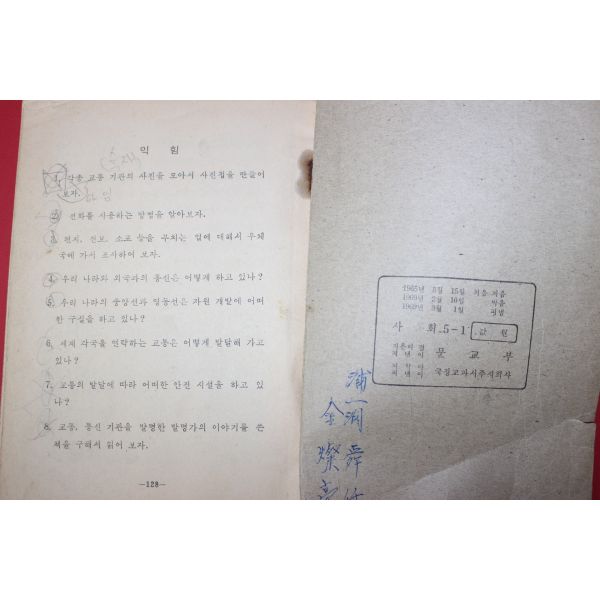 익 힘
1. 각종 교통 기관의 사진을 모아서 사진첩을 만들어
보자.
2. 전화를 사용하는 방법을 알아보자.
3. 편지, 전보, 소포 등을 부치는 일에 대해서 우체
국에 가서 조사하여 보자.
4. 우리 나라와 외국과의 통신은 어떻게 하고 있나?
5. 우리 나라의 중앙선과 영동선은 자원 개발에 어떠
한 구실을 하고 있나?
6. 세계 각국을 연락하는 교통은 어떻게 발달해 가고
있나?
7. 교통의 발달에 따라 어떠한 안전 시설을 하고 있
나?
8. 교통, 통신 기관을 발명한 발명가의 이야기를 쓴
책을 구해서 읽어 보자.
—128—
1965년 8월 15일 처음 지음
1969년 2월 10일 박음
1969년 3월 1일 펴냄
사 회 5-1 값 원
지은이 겸
펴낸이 문 교 부
박은이 국정교과서주식회사
浦
一 洞
金 舜
燦